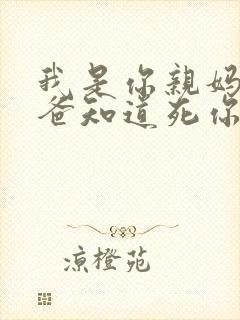 我是你親妈
爸知道死你
凉橙苑